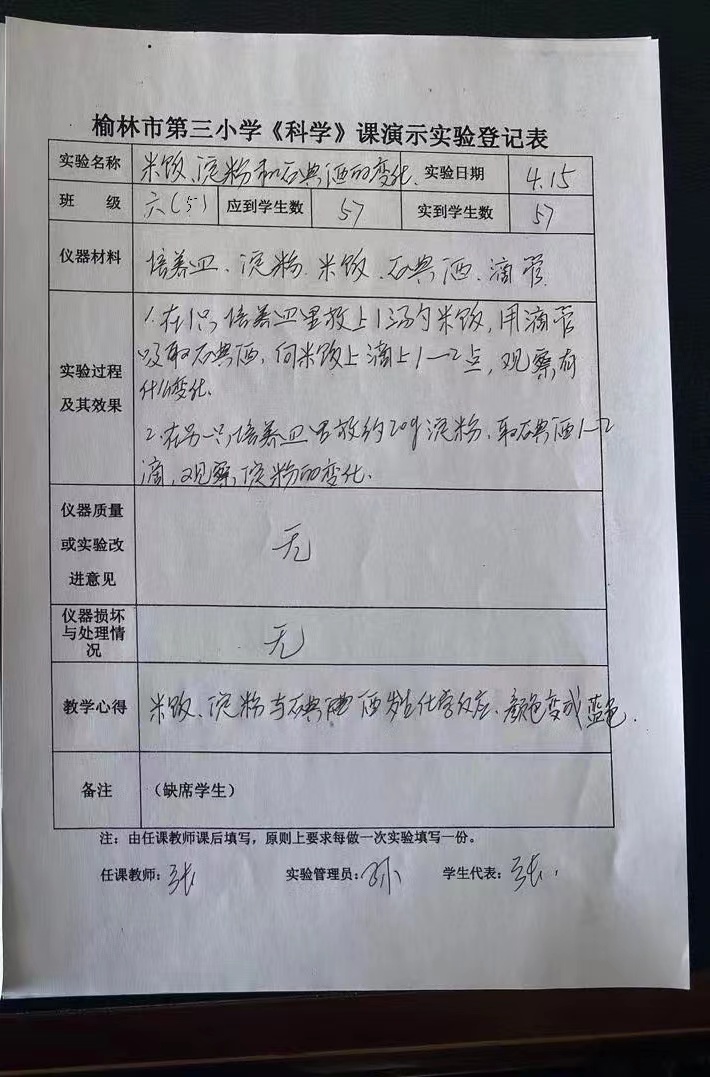 榆林市第三小学《科学》课演示实验登记表
实验名称 米饭、淀粉和石典酒的变化. 实验日期 4.15
班 级 六(5) 应到学生数 57 实到学生数 57
仪器材料 培养皿、淀粉、米饭、石典酒、滴管
1.在1只培养皿里放上1汤勺米饭,用滴管
吸取石典酒,向米饭上滴上1—2点,观察有
什么变化.
实验过程
及其效果
2.在另一只培养皿里放约20g淀粉、取碘酒1—2
滴,观察淀粉的变化.
仪器质量
或实验改
进意见
无
仪器损坏
与处理情
况
无
教学心得 米饭、淀粉与石典酒发生化学反应、颜色变成蓝色.
备注 (缺席学生)
注:由任课教师课后填写,原则上要求每做一次实验填写一份。
任课教师:张 实验管理员:孙 学生代表:张.